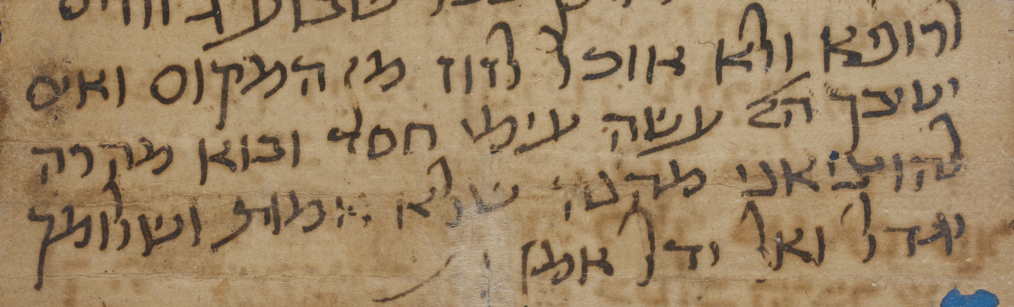 ורופא ולא אוכל לזוז מן המקום ואים
יעיבך הב עשה עימי חסד ובוא מהרה
להוציאני מהנה שלא אמות ושלומך
יגדל ואל ידל אמן